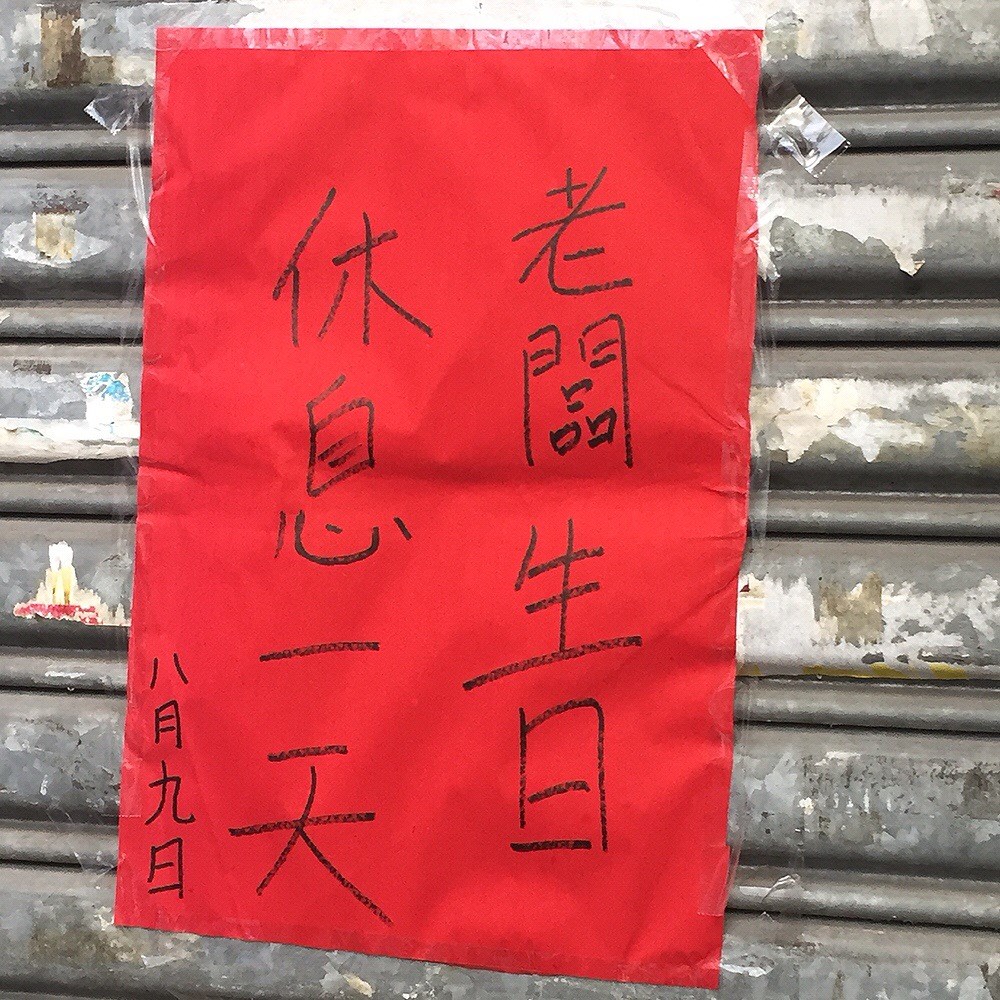 老闆生日
休息一天
八月九日